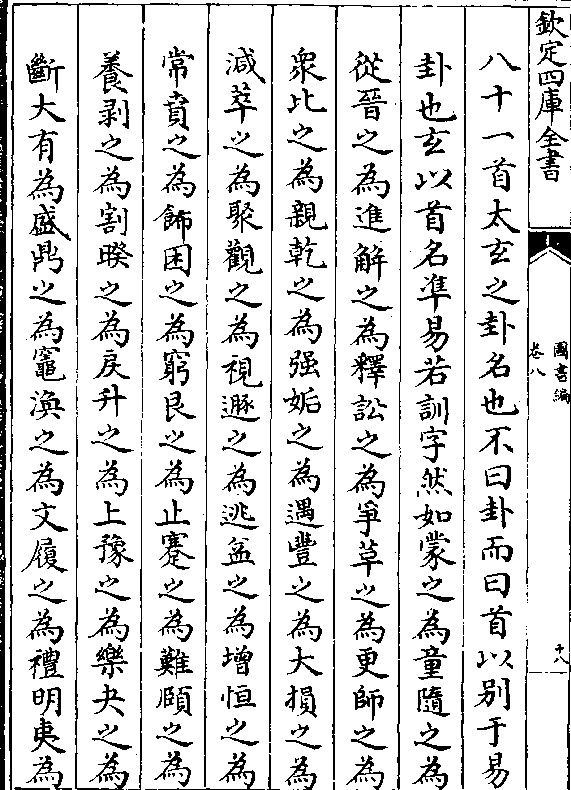 欽定四庫全書
圖書編
卷八
十八
八十一首太玄之卦名也不曰卦而曰首以别于易
卦也玄以首名準易若訓字然如蒙之為童隨之為
從晉之為進解之為釋訟之為爭革之為更師之為
衆比之為親乾之為强姤之為遇豐之為大損之為
減萃之為聚觀之為視遯之為逃益之為增恒之為
常賁之為飾困之為窮艮之為止蹇之為難頤之為
養剥之為割睽之為戾升之為上豫之為樂夬之為
斷大有為盛鼎之為竈渙之為文履之為禮明夷為